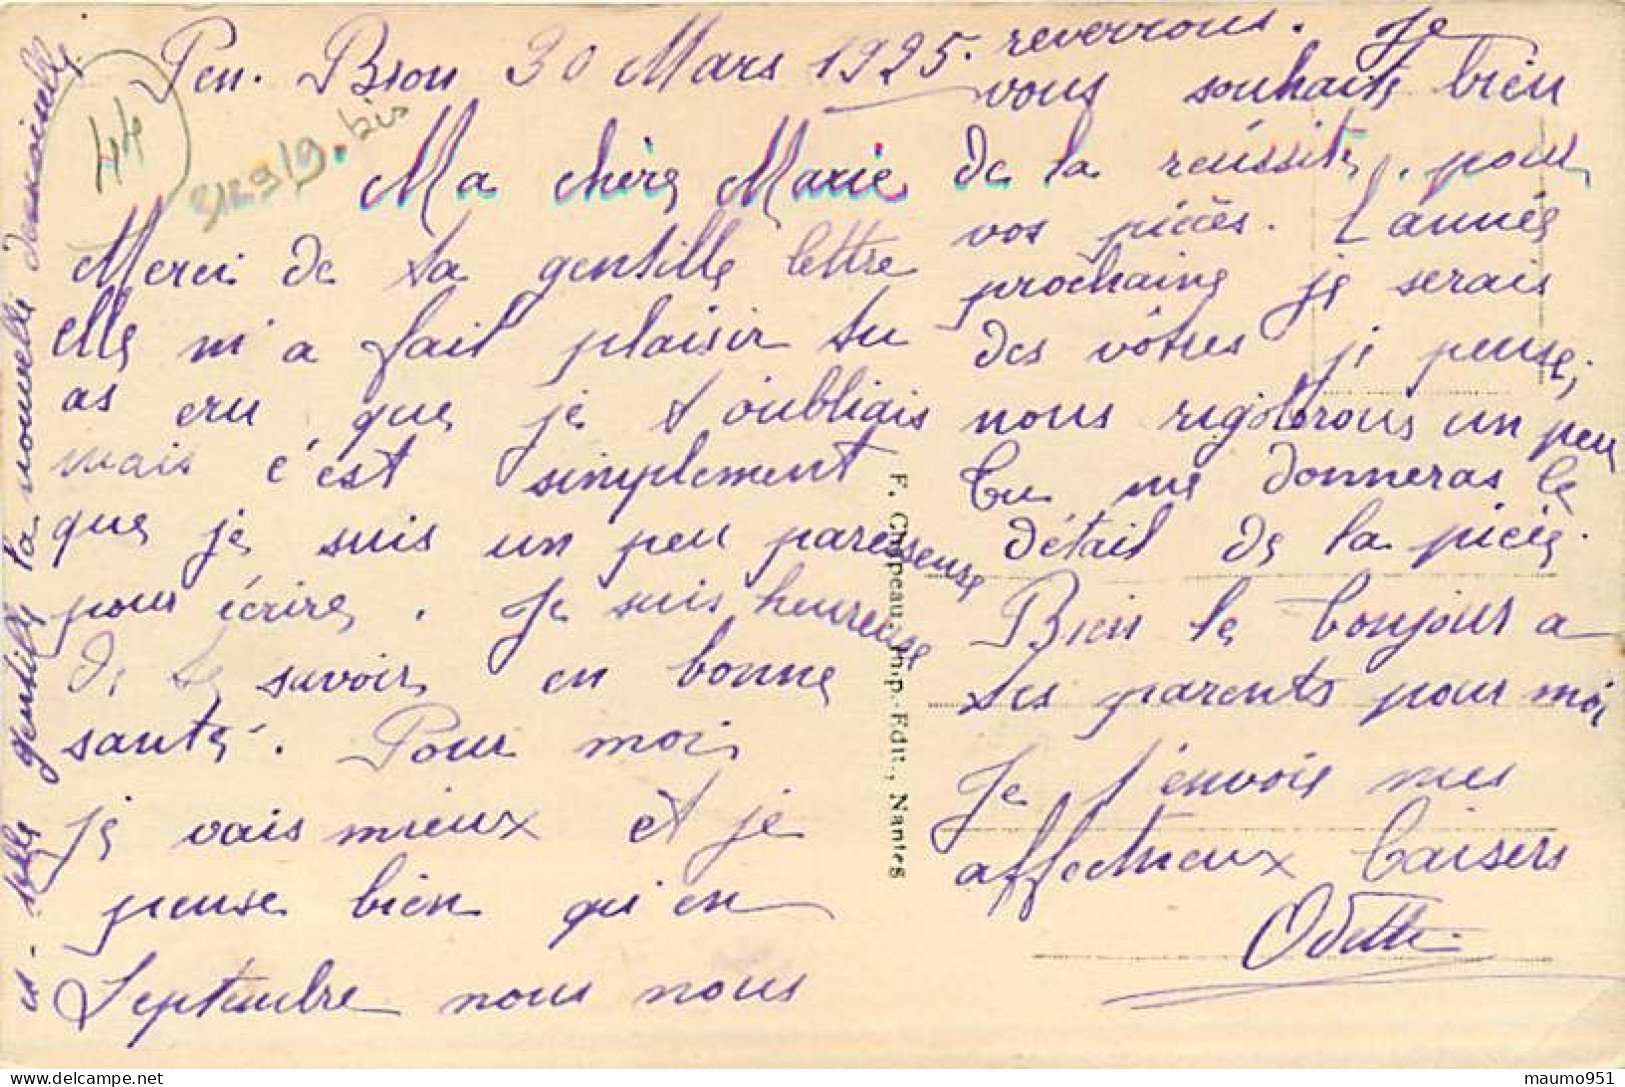 Pen. Bron 30 Mars 1925.
44
312919. bis
Ma chère Marie
Merci de ta gentille lettre
elle m'a fait plaisir tu
as cru que je t'oubliais
mais c'est simplement
que je suis un peu paresseuse
pour écrire. Je suis heureuse
de te savoir en bonne
santé. Pour moi
je vais mieux et je
pense bien qu'en
Septembre nous nous
reverrons. Je
vous souhaite bien
de la réussite, pour
vos pièces. L'année
prochaine je serais
des vôtres je pense,
nous rigolerons un peu
tu me donneras le
détail de la pièce.
Bien le bonjour a
tes parents pour moi
Je t'envoie mes
affectueux baisers
Odette
es-elle gentille la nouvelle demoiselle
F. Chapeau, Imp.-Edit., Nantes
maumo951